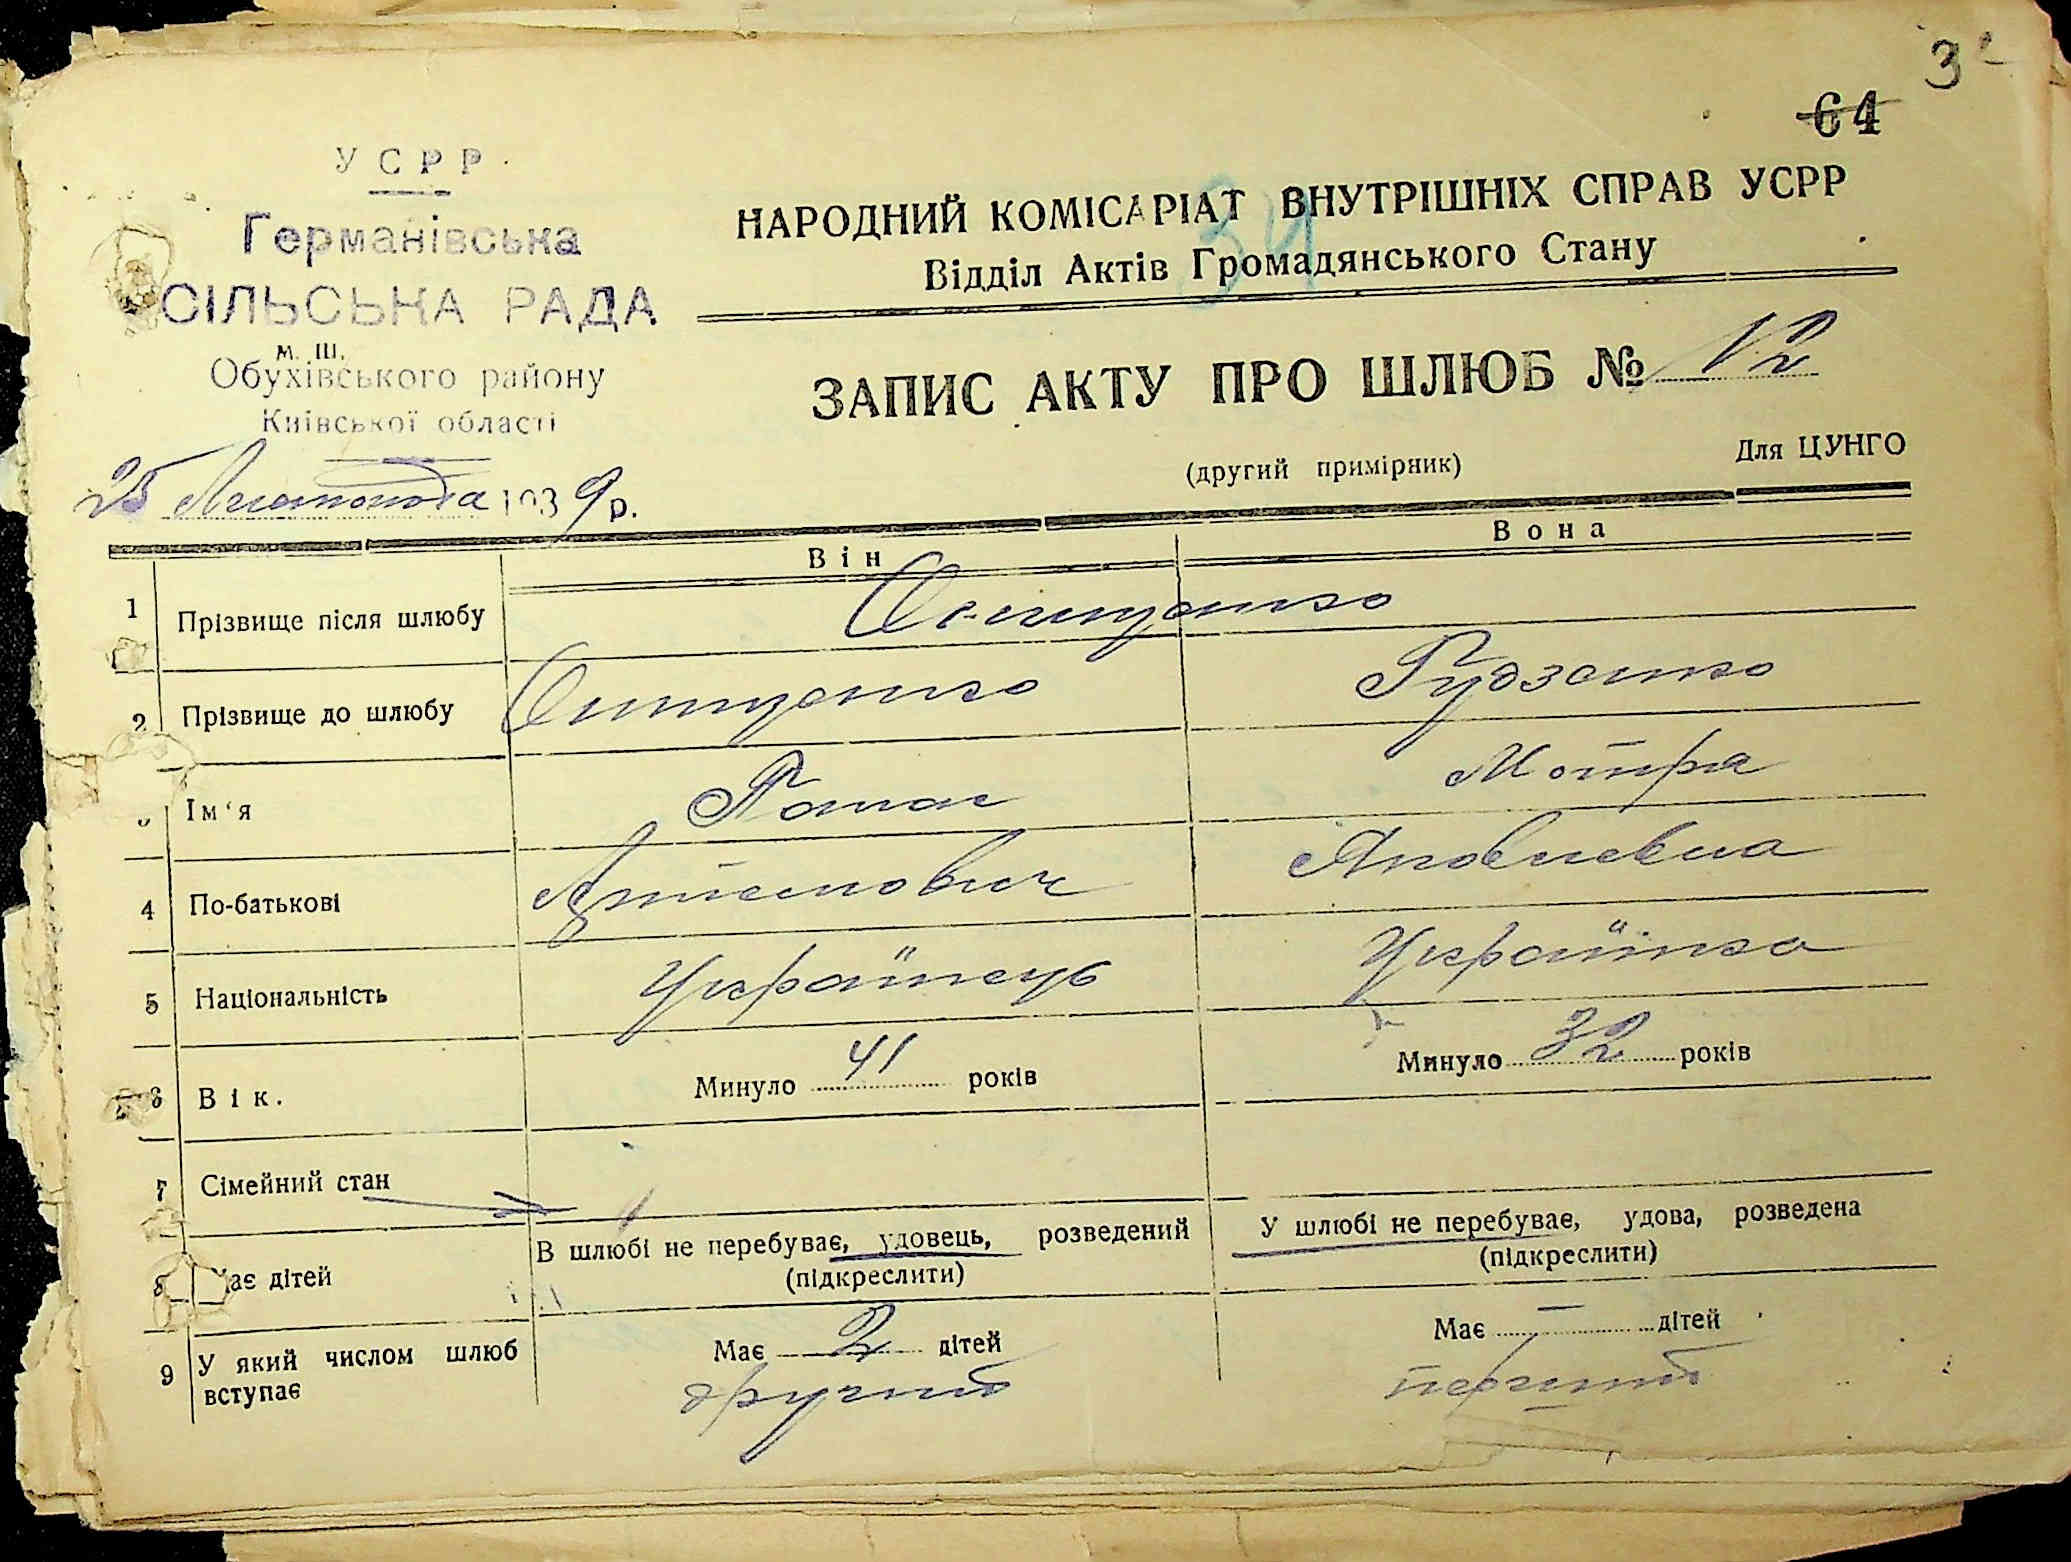 3
64
У С Р Р
Германівська
СІЛЬСЬКА РАДА
м. ш.
Обухівського району
Київської області
25 Листопада 1939 р.
34
НАРОДНИЙ КОМІСАРІАТ ВНУТРІШНІХ СПРАВ УСРР
Відділ Актів Громадянського Стану
ЗАПИС АКТУ ПРО ШЛЮБ № 12
(другий примірник)
Для ЦУНГО
Він
Вона
1 Прізвище після шлюбу Онищенко
2 Прізвище до шлюбу Онищенко Гудзенко
Ім‘я Панас Мотря
4 По-батькові Артемович Яковлевна
5 Національність Українець Українка
6 Вік. Минуло 41 років Минуло 32 років
7 Сімейний стан
В шлюбі не перебуває, удовець, розведений У шлюбі не перебуває, удова, розведена
(підкреслити) (підкреслити)
8 має дітей
Має 2 дітей Має — дітей
9 У який числом шлюб вступає другий перший